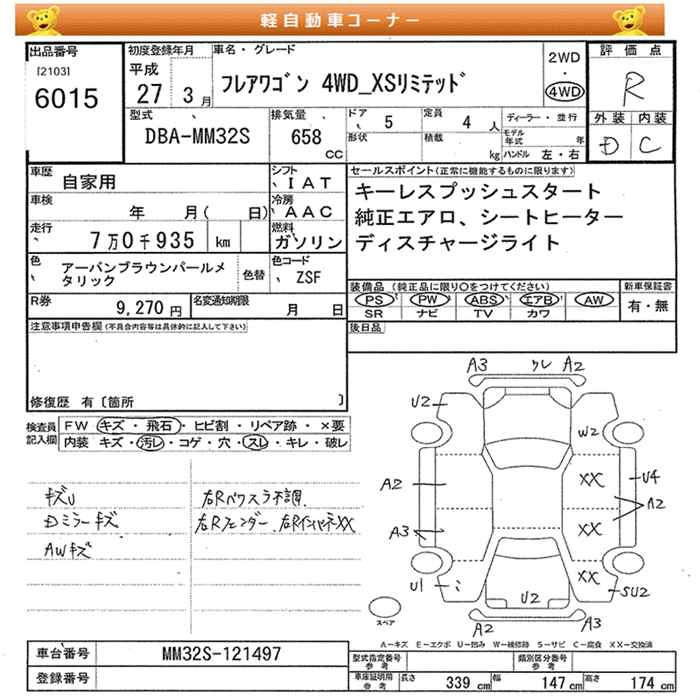 軽自動車コーナー
出品番号
[2103]
6015
初度登録年月
平成
27 3月
車名・グレード
フレアワゴン 4WD_XSリミテッド
2WD
・
4WD
評価点
R
外装 内装
D C
型式
DBA-MM32S
排気量
658
CC
ドア
5
形状
定員
4 人
積載
kg
ディーラー・並行
モデル年式 年
ハンドル 左・右
車歴
自家用
シフト
IAT
車検
年 月( 日)
冷房
AAC
走行
7万0千935 km
燃料
ガソリン
色
アーバンブラウンパールメタリック
色替
色コード
ZSF
R券
9,270円
名変通知期限
月 日
セールスポイント(正常に機能するものに限ります)
キーレスプッシュスタート
純正エアロ、シートヒーター
ディスチャージライト
装備品 (純正品に限り○をつけてください)
PS PW ABS エアB AW
SR ナビ TV カワ
新車保証書
有・無
後日品
注意事項申告欄(不具合内容等は具体的に記入して下さい)
修復歴 有〔箇所 〕
検査員記入欄
FW キズ・飛石・ヒビ割・リペア跡・×要
内装 キズ・汚レ・コゲ・穴・スレ・キレ・破レ
キズU
Dミラーキズ
AWキズ
右Rパワスラ不調
右Rフェンダー、右RインパネXX
A3 ワレ A2
U2
W2
A2
XX
U4
A2
XX
A3
XX
U1
U2
SU2
A2
A3
スペア
A-キズ E-エクボ U-凹み W-補修跡 S-サビ C-腐食 XX-交換済
車台番号
MM32S-121497
登録番号
型式指定番号
参考
類別区分番号
参考
車庫証明用
参考
長さ 339 cm 幅 147 cm 高さ 174 cm